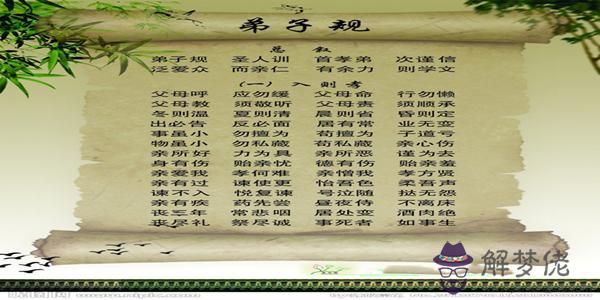 弟子规
总叙
弟子规 圣人训 首孝弟 次谨信
泛爱众 而亲仁 有余力 则学文
(一)入则孝
父母呼 应勿缓 父母命 行勿懒
父母教 须敬听 父母责 须顺承
冬则温 夏则清 晨则省 昏则定
出必告 反必面 居有常 业无变
事虽小 勿擅为 苟擅为 子道亏
物虽小 勿私藏 苟私藏 亲心伤
亲所好 力为具 亲所恶 谨为去
身有伤 贻亲忧 德有伤 贻亲羞
亲爱我 孝何难 亲憎我 孝方贤
亲有过 谏使更 怡吾色 柔吾声
谏不入 悦复谏 号泣随 挞无怨
亲有疾 药先尝 昼夜侍 不离床
丧三年 常悲咽 居处变 酒肉绝
丧尽礼 祭尽诚 事死者 如事生
解梦佬